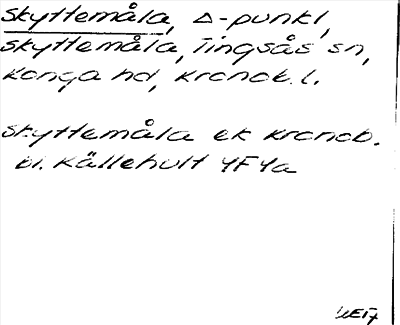 Skyttemåla, Δ-punkt,
Skyttemåla, Tingsås sn,
Konga hd, Kronob. l.
Skyttemåla ek Kronob.
bl. Källehult 4F4a